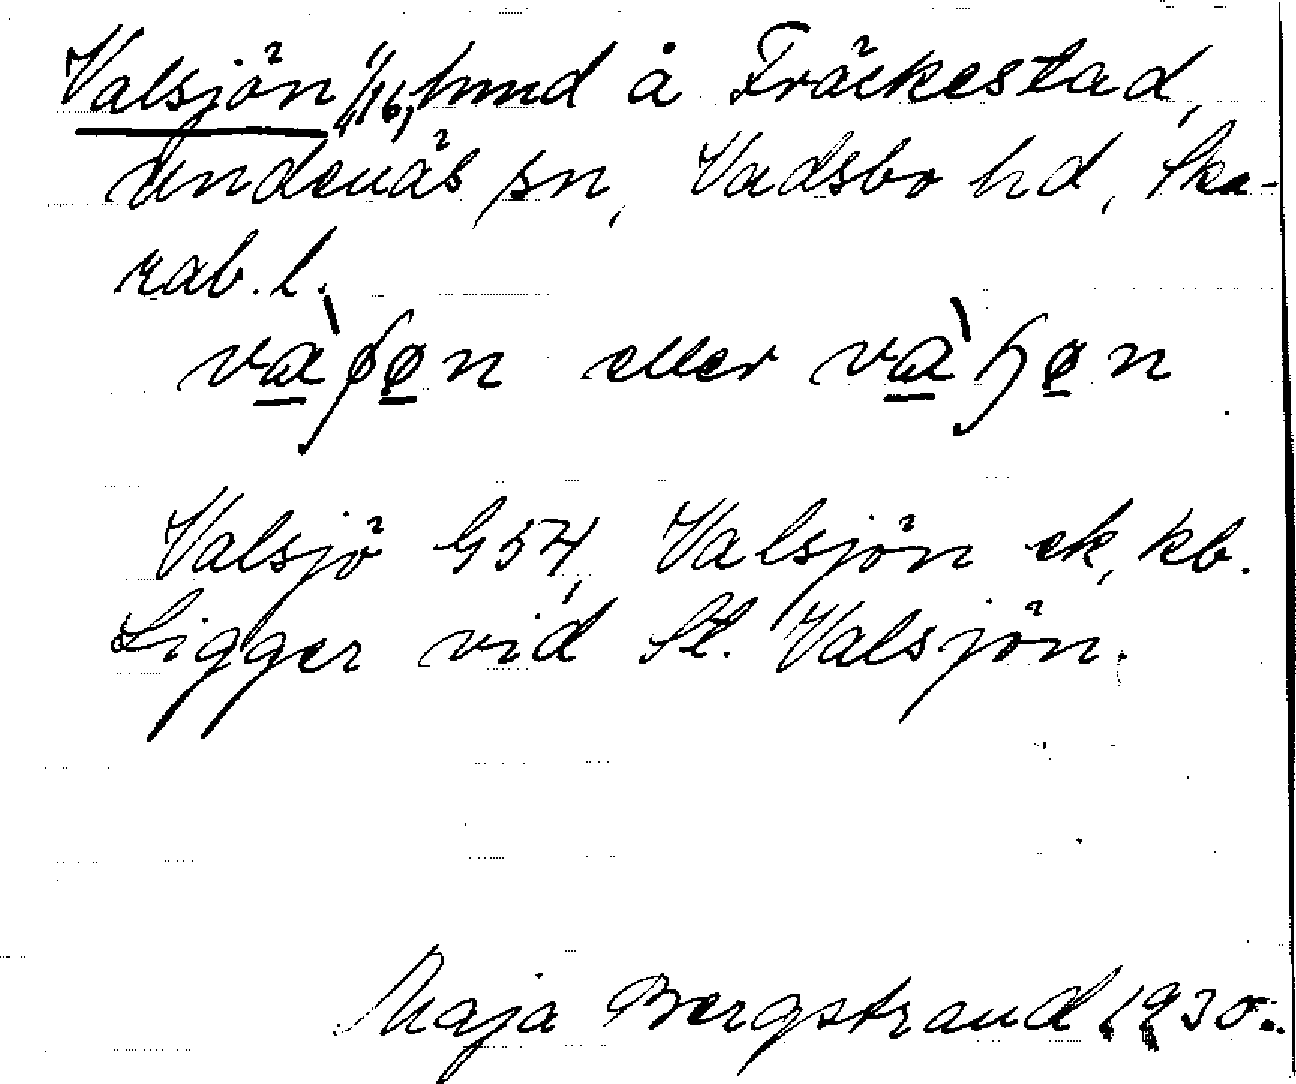 Valsjön, 1/16, hmd å Fräckestad,
Undenäs sn, Vadsbo hd, Ska-
rab. l.
eller
Valsjö G 54, Valsjön ek, kb.
Ligger vid St. Valsjön.
Maja Bergstrand 1930.